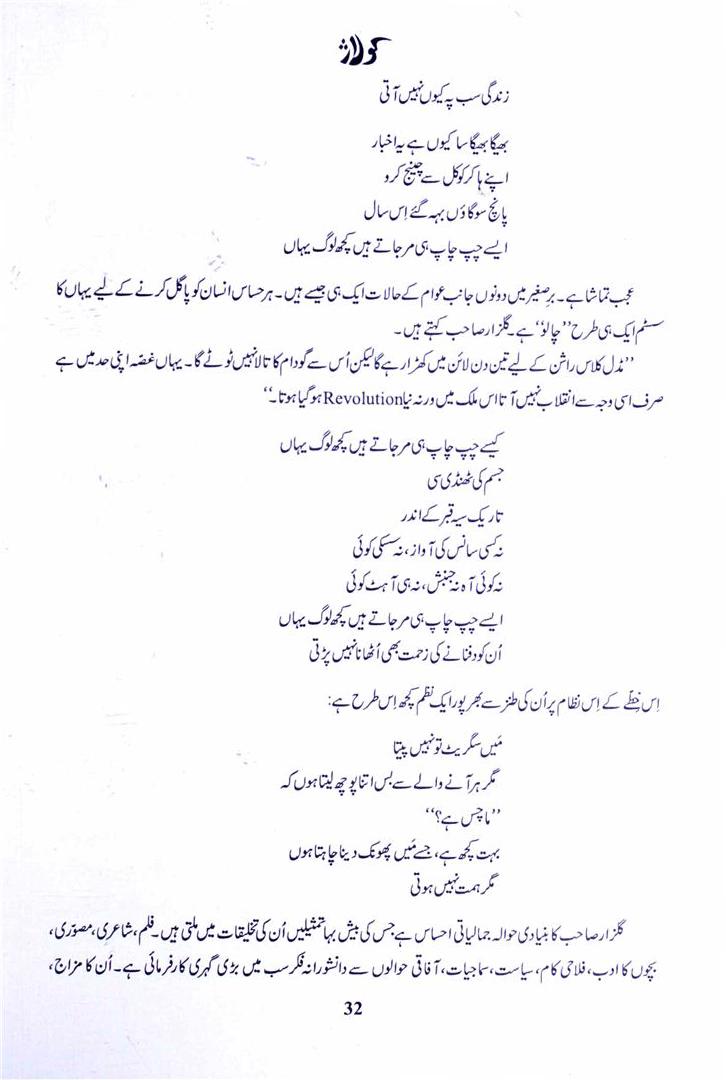 کولاژ
زندگی سب پہ کیوں نہیں آتی
بھیگا بھیگا سا کیوں ہے یہ اخبار
اپنے ہاکر کو کل سے چینج کرو
پانچ سو گاؤں بہہ گئے اِس سال
ایسے چپ چاپ ہی مر جاتے ہیں کچھ لوگ یہاں
عجب تماشا ہے۔ برِصغیر میں دونوں جانب عوام کے حالات ایک ہی جیسے ہیں۔ ہر حساس انسان کو پاگل کرنے کے لیے یہاں کا
سسٹم ایک ہی طرح ”چالو“ ہے۔ گلزار صاحب کہتے ہیں۔
”مڈل کلاس راشن کے لیے تین دن لائن میں کھڑا رہے گا لیکن اُس سے گودام کا تالا نہیں ٹوٹے گا۔ یہاں غصّہ اپنی حد میں ہے
صرف اسی وجہ سے انقلاب نہیں آتا اس ملک میں ورنہ نیا Revolution ہو گیا ہوتا۔“
کیسے چپ چاپ ہی مر جاتے ہیں کچھ لوگ یہاں
جسم کی ٹھنڈی سی
تاریک سیہ قبر کے اندر
نہ کسی سانس کی آواز، نہ سسکی کوئی
نہ کوئی آہ نہ جنبش، نہ ہی آہٹ کوئی
ایسے چپ چاپ ہی مر جاتے ہیں کچھ لوگ یہاں
اُن کو دفنانے کی زحمت بھی اُٹھانا نہیں پڑتی
اِس خِطّے کے اِس نظام پر اُن کی طنز سے بھرپور ایک نظم کچھ اِس طرح ہے:
مَیں سگریٹ تو نہیں پیتا
مگر ہر آنے والے سے بس اتنا پوچھ لیتا ہوں کہ
”ماچس ہے؟“
بہت کچھ ہے، جسے مَیں پھونک دینا چاہتا ہوں
مگر ہمت نہیں ہوتی
گلزار صاحب کا بنیادی حوالہ جمالیاتی احساس ہے جس کی بیش بہا تمثیلیں اُن کی تخلیقات میں ملتی ہیں۔ فلم، شاعری، مصوّری،
بچوں کا ادب، فلاحی کام، سیاست، سماجیات، آفاقی حوالوں سے دانشورانہ فکر سب میں بڑی گہری کارفرمائی ہے۔ اُن کا مزاج،
32